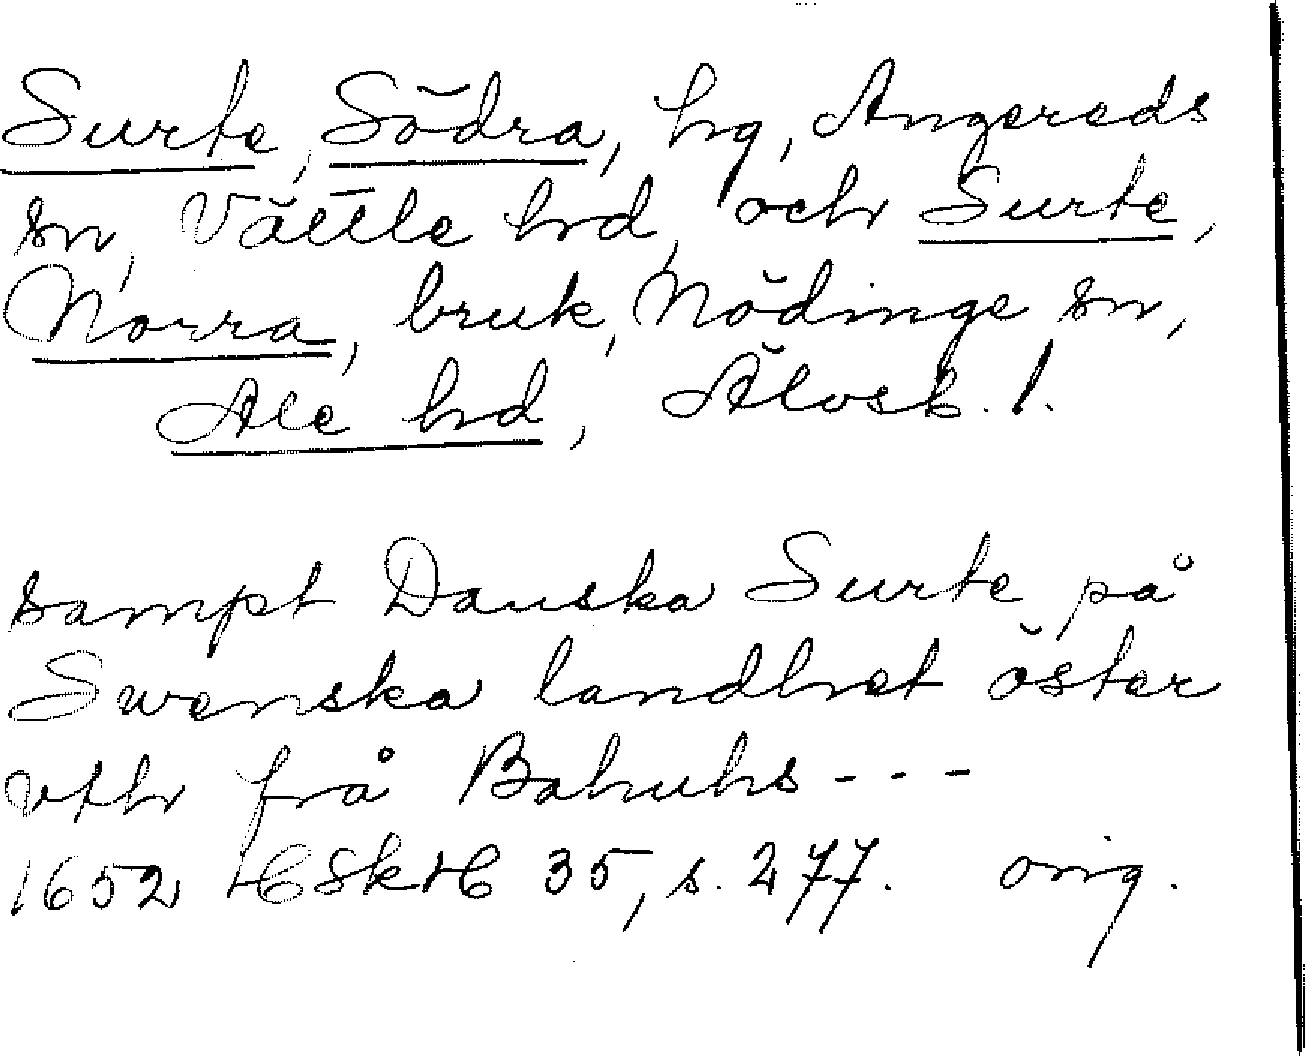 Surte, Södra, hg, Angereds
sn, Vättle hrd, och Surte,
Norra, bruk, Nödinge sn,
Ale hrd, Älvsb. l.
sampt Danska Surte på
Swenska landhet öster
vthr frå Bahuhs ---
1652 HSkH 35, s. 277. orig.